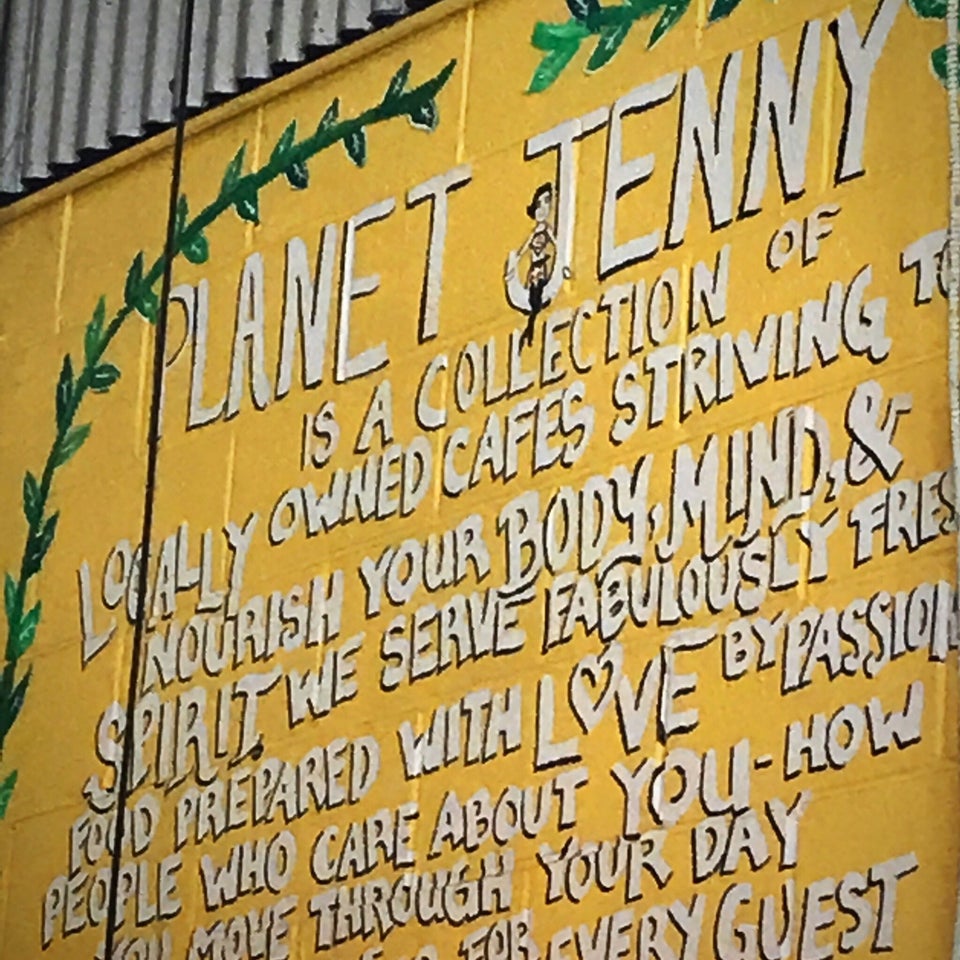 PLANET JENNY
IS A COLLECTION OF
LOCALLY OWNED CAFES STRIVING TO
NOURISH YOUR BODY, MIND, &
SPIRIT WE SERVE FABULOUSLY FRES
FOOD PREPARED WITH LOVE BY PASSION
PEOPLE WHO CARE ABOUT YOU - HOW
YOU MOVE THROUGH YOUR DAY
FOR EVERY GUEST